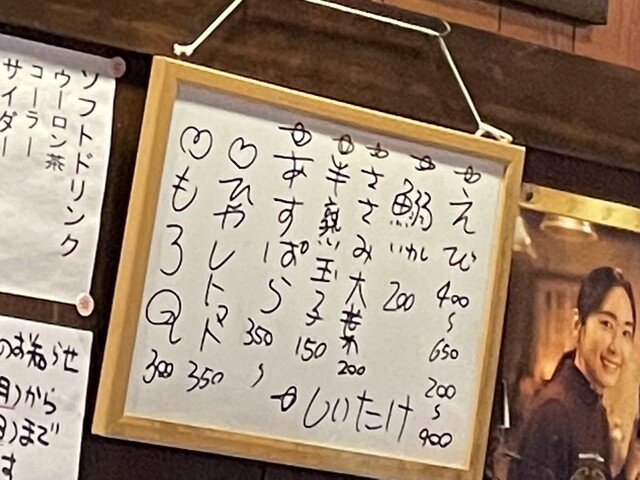 えび 400〜650
鰯 いわし 200
ささみ大葉 200
半熟玉子 150
あすぱら 350〜
ひやしトマト 350
もろQ 300
しいたけ 200〜400
ソフトドリンク
ウーロン茶
コーラー
サイダー
のお知らせ
月)から
)まで
す